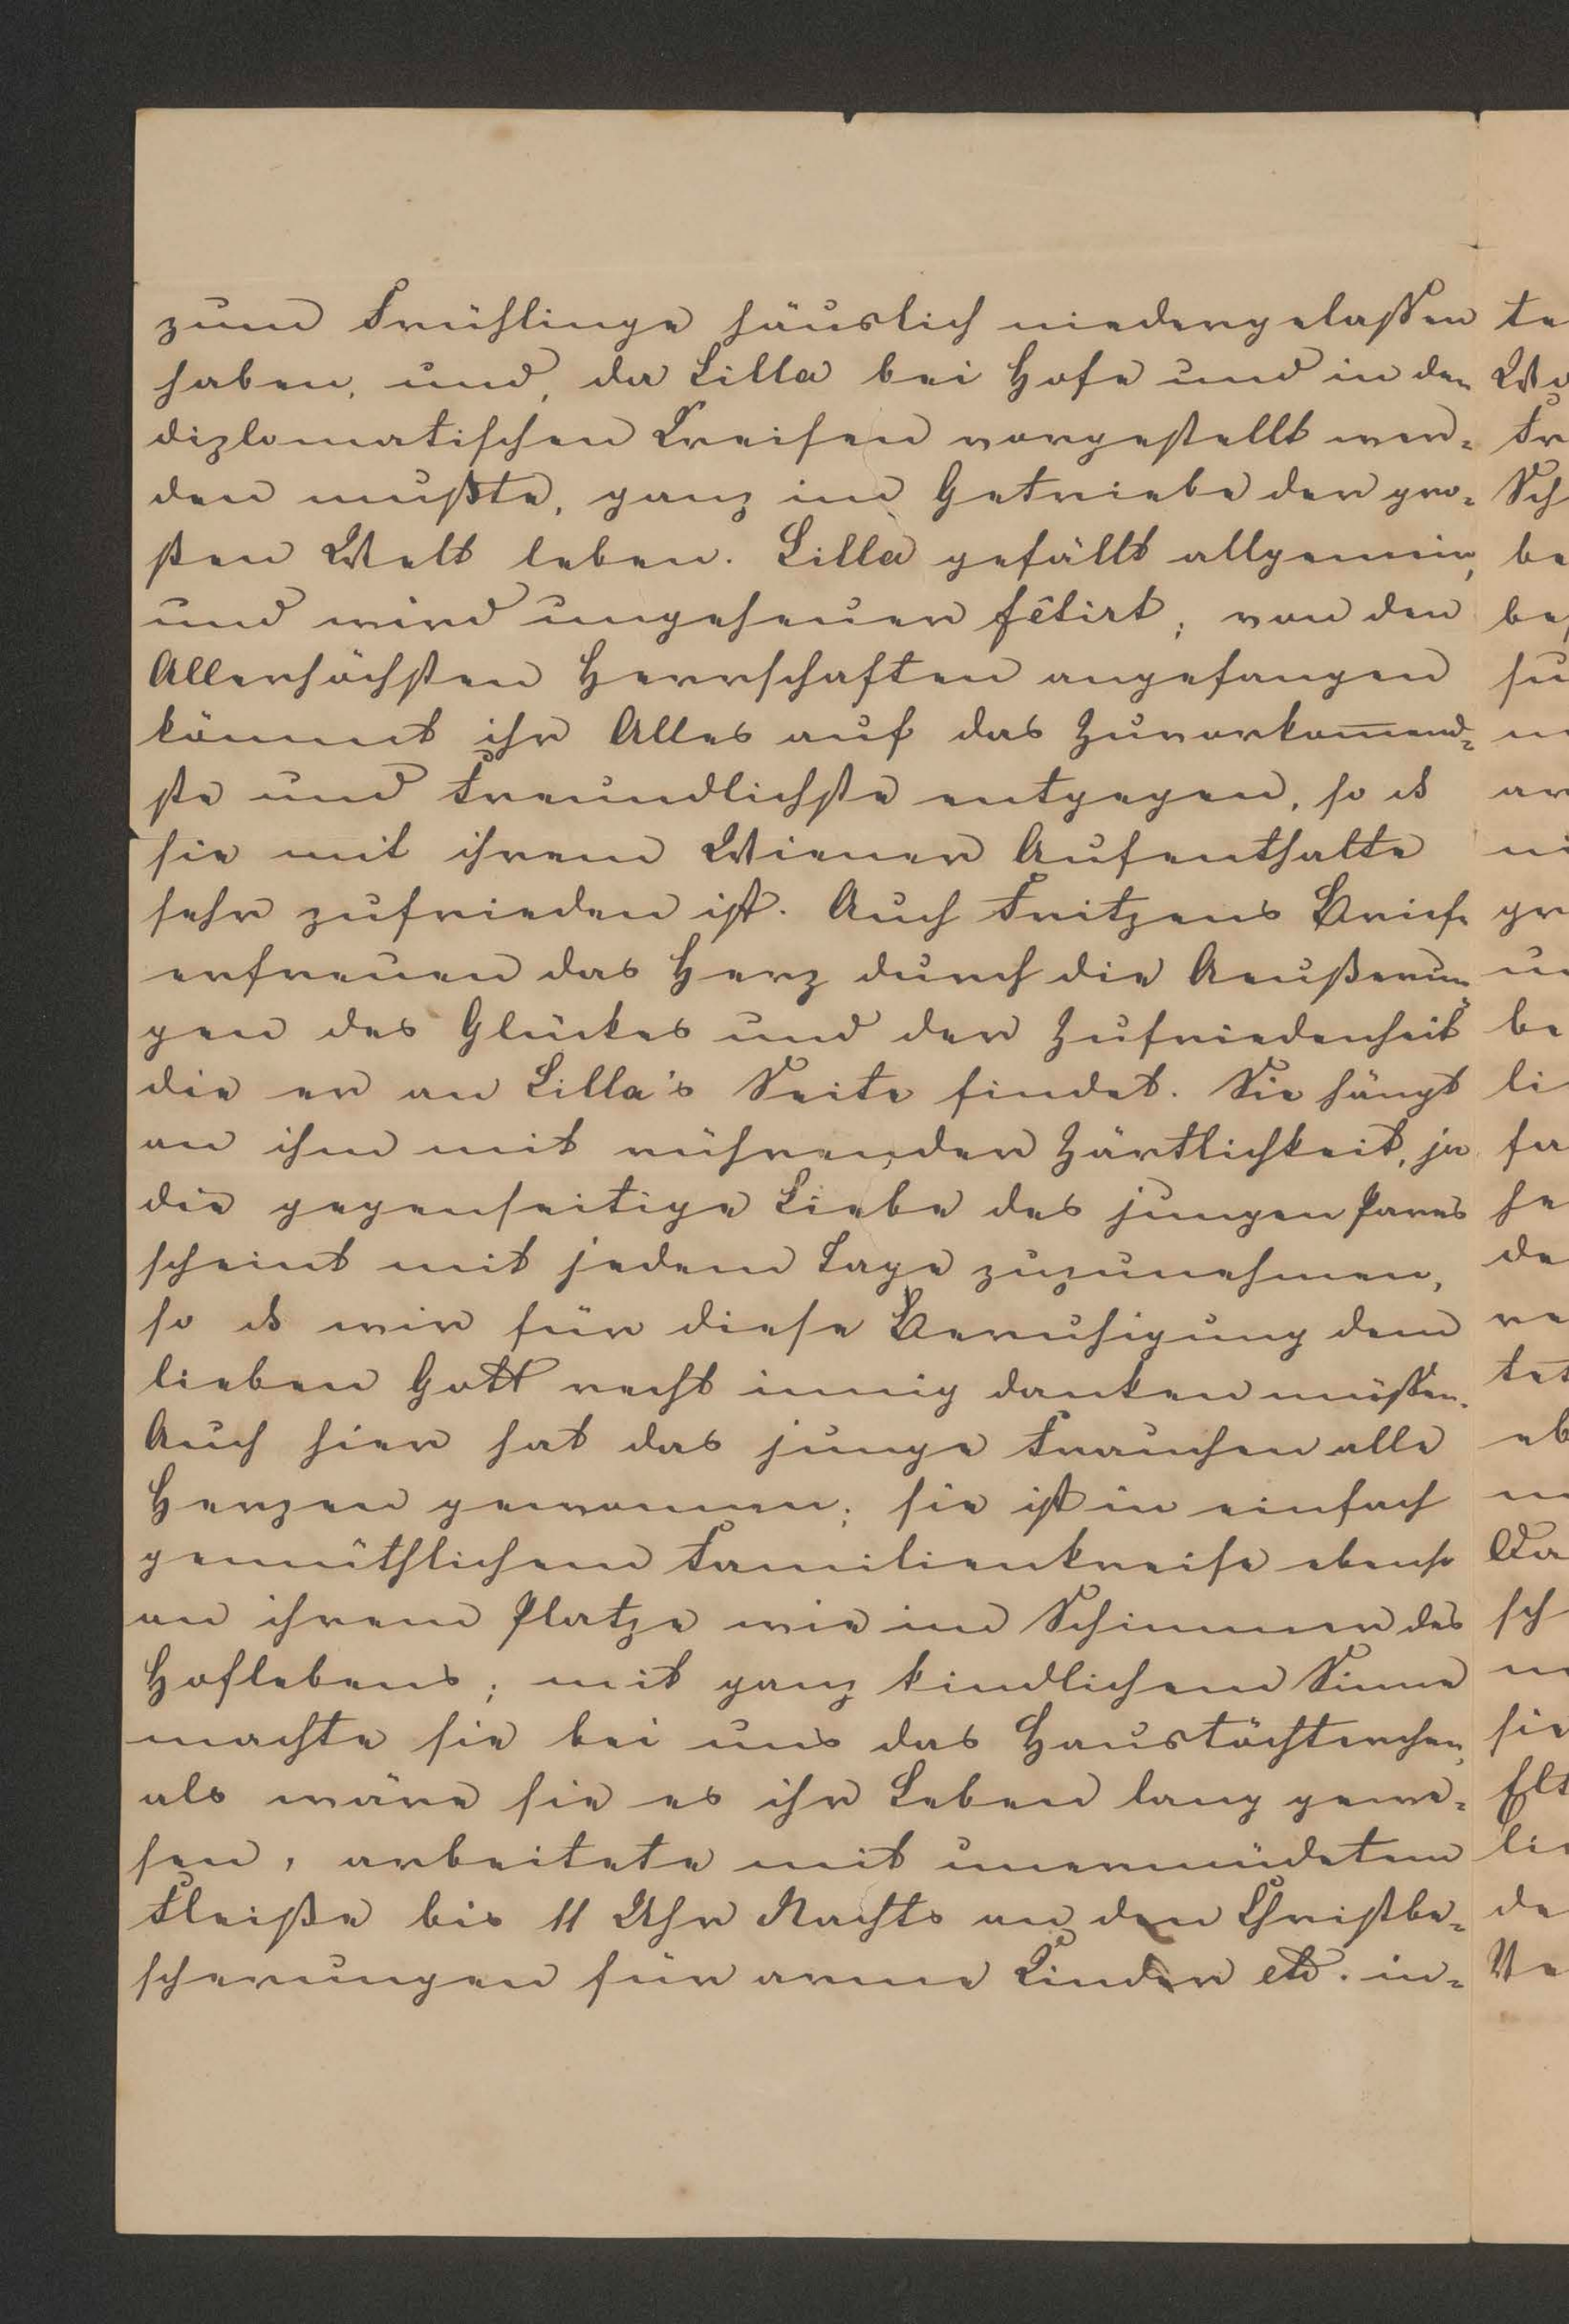 zum Frühlinge häuslich niedergelassen
haben, und, da Lilla bei Hofe und in den
diplomatischen Kreisen vorgestellt wer-
den mußte, ganz im Getriebe der gro-
ßen Welt leben. Lilla gefällt allgemein,
und wird ungeheuer fêtirt; von den
Allerhöchsten Herrschaften angefangen
kömmt ihr Alles auf das Zuvorkom̅end-
ste und Freundlichste entgegen, so ds
sie mit ihrem Wiener Aufenthalte
sehr zufrieden ist. Auch Fritzens Briefe
erfreuen das Herz durch die Aeußerun
gen des Glückes und der Zufriedenheit
die er an Lilla's Seite findet. Sie hängt
an ihm mit rührender Zärtlichkeit, ja
die gegenseitige Liebe des jungen Pares
scheint mit jedem Tage zuzunehmen,
so ds wir für diese Beruhigung dem
lieben Gott recht innig danken müssen.
Auch hier hat das junge Frauchen alle
Herzen gewonnen; sie ist in einfach
gemüthlichem Familienkreise ebenso
an ihrem Platze wie im Schimmer des
Hoflebens; mit ganz kindlichem Sinne
machte sie bei uns das Haustöchterchen,
als wäre sie es ihr Leben lang gewe-
sen, arbeitete mit unermüdetem
Fleiße bis 11 Uhr Nachts an den Christbe-
scherungen für arme Kinder etc. in-
te
Wo
Fr
Sch
be
be
su
ar
ni
gr
be
li
fa
he
de
re
tet
eb
Da
sch
sie
Elt
lie
de
Ve